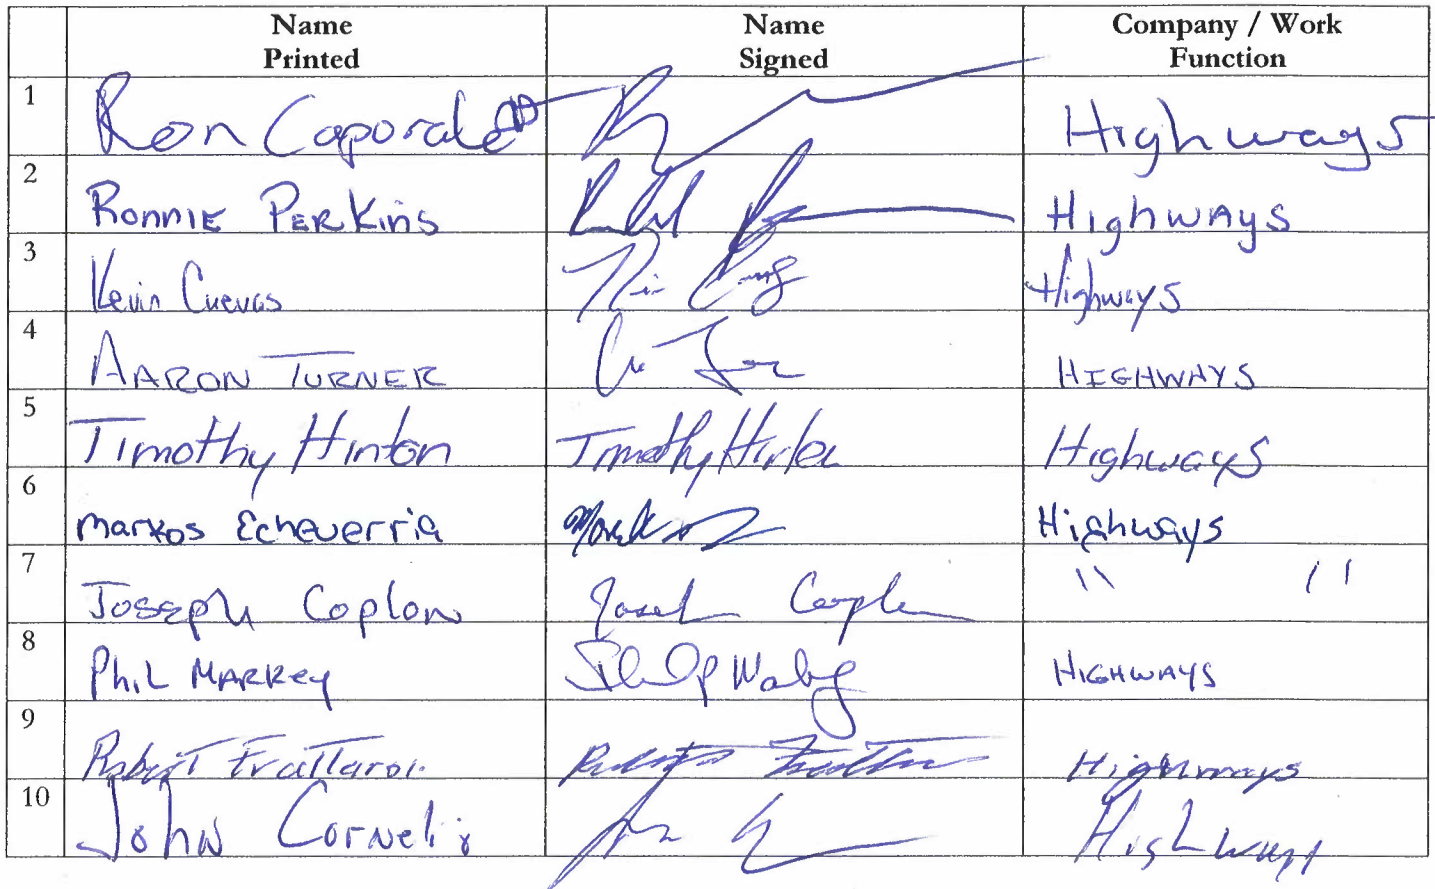 Name Printed Name Signed Company / Work Function
1 Ron Caporale Highways
2 Ronnie Perkins Highways
3 Kevin Cuevas Highways
4 AARON TURNER HIGHWAYS
5 Timothy Hinton Timothy Hinton Highways
6 Markos Echeverria Highways
7 Joseph Coplon Joseph Coplon " "
8 Phil Markey HIGHWAYS
9 Robert Frattaroi Highways
10 John Cornelio Highways